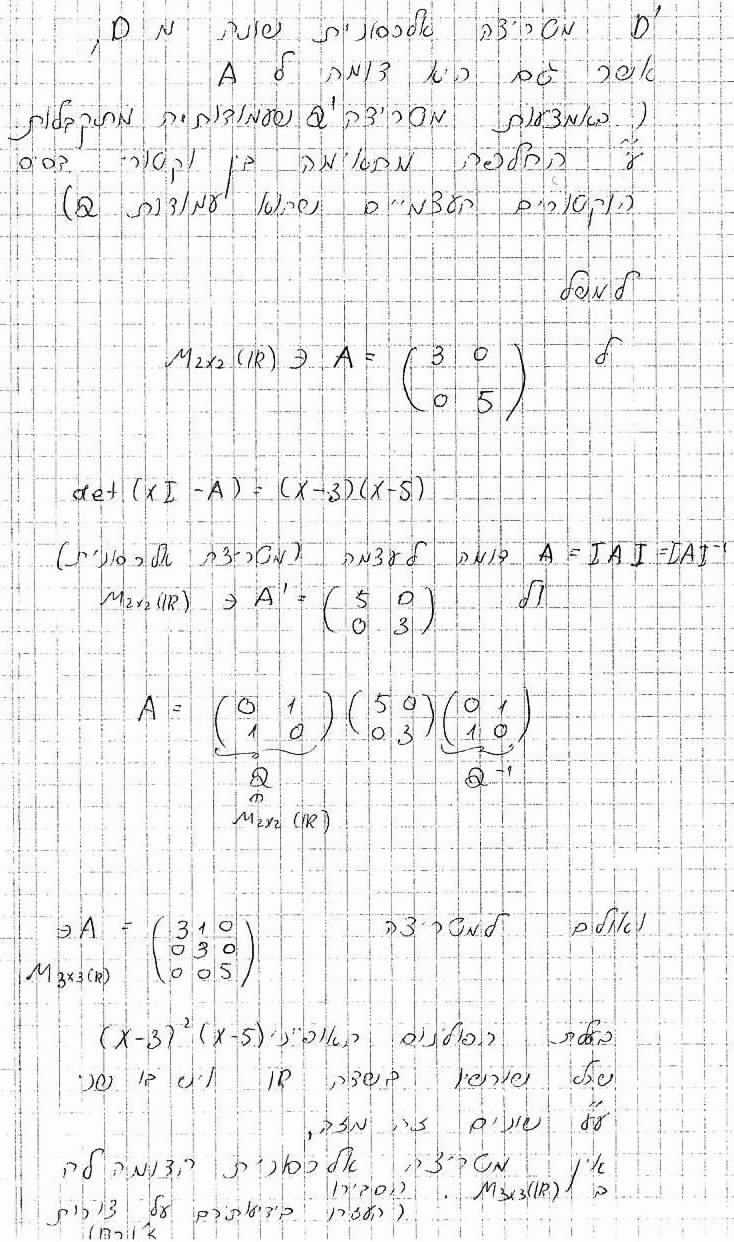 D' מטריצה אלכסונית שונה מ D,
אשר גם היא דומה ל A
(באמצעות מטריצה Q' שעמודותיה מתקבלות
ע"י החלפה מתאימה בין וקטורי בסיס
הוקטורים העצמיים שהוא עמודות Q)
למשל
ל A = ( 3 0 / 0 5 ) ∈ M2x2(IR)
det (xI - A) = (x-3)(x-5)
A = IAI = IAI⁻¹ דומה לעצמה (מטריצה אלכסונית)
ול A' = ( 5 0 / 0 3 ) ∈ M2x2(IR)
A = ( 0 1 / 1 0 ) ( 5 0 / 0 3 ) ( 0 1 / 1 0 )
Q Q⁻¹
∈
M2x2(IR)
ואולם למטריצה A = ( 3 1 0 / 0 3 0 / 0 0 5 ) ∈
M3x3(IR)
בעלת הפולינום האופייני (x-3)²(x-5)
שכל שורשיו בשדה IR ויש בו שני
ע"ע שונים זה מזה,
אין מטריצה אלכסונית הדומה לה
ב M3x3(IR). הסבירו
(העזרו בידיעותיכם על צורות